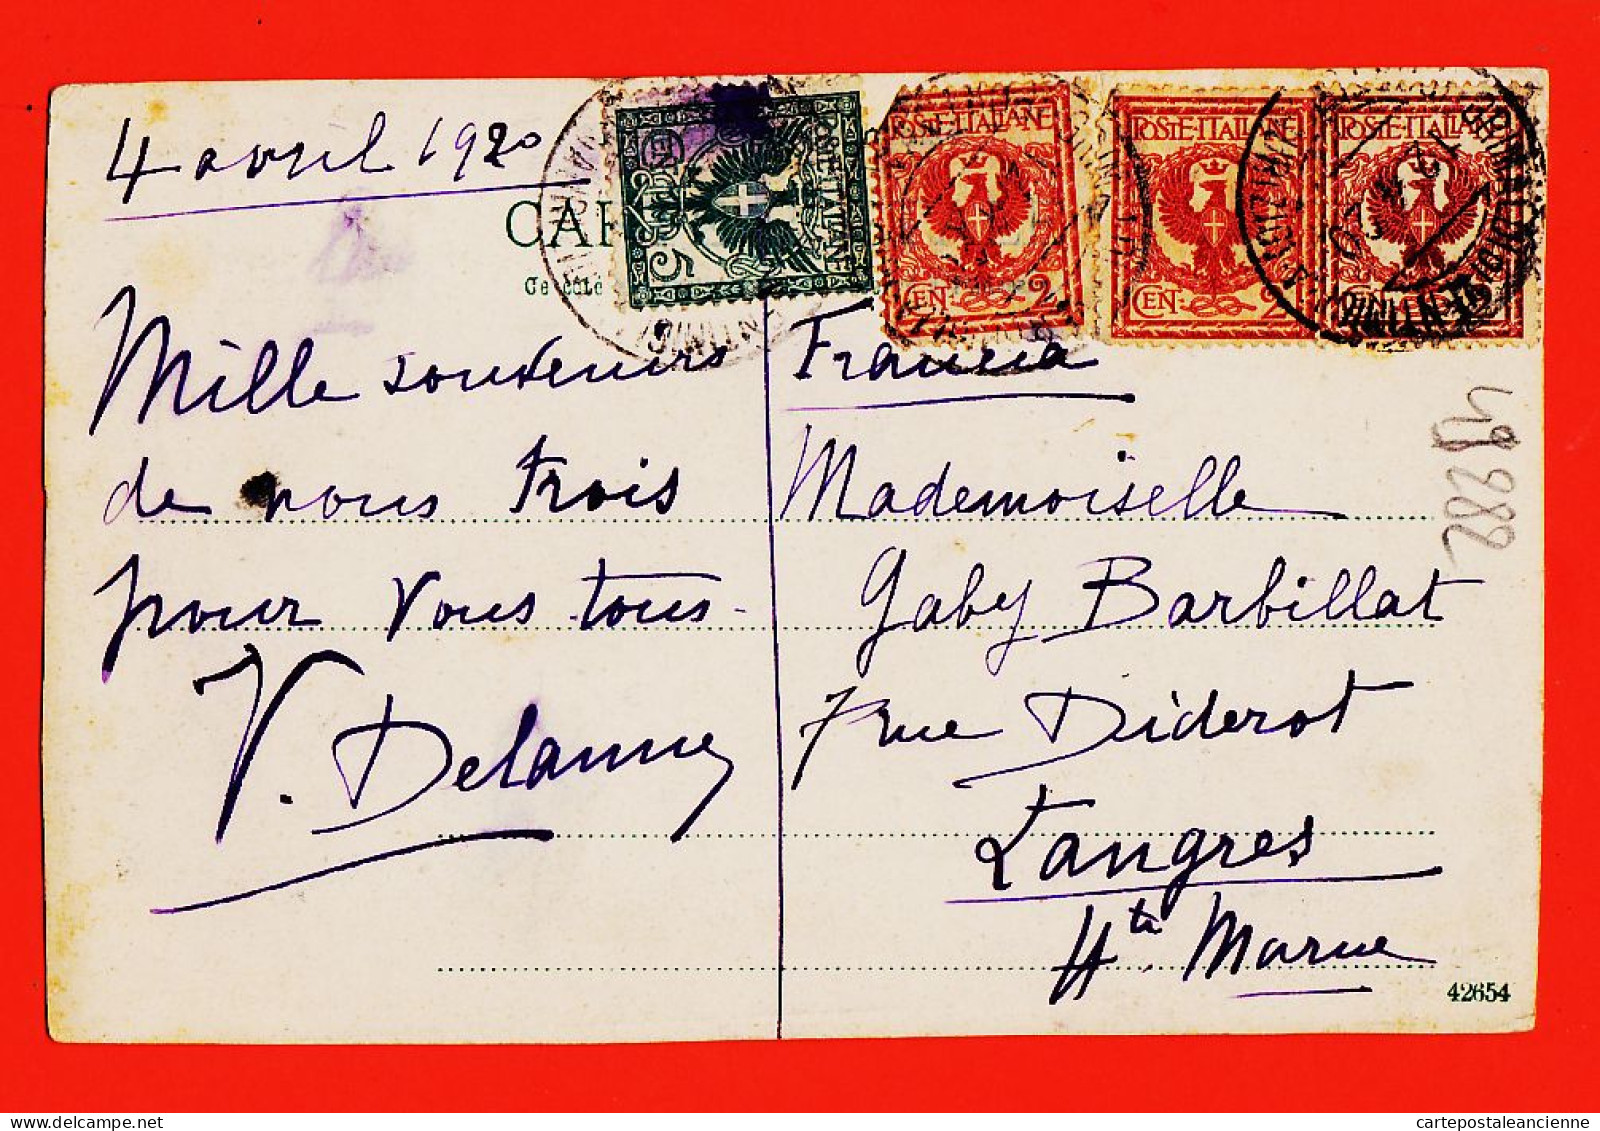 4 avril 1920
CAR
Ce côté
POSTE ITALIANE
CEN 5
POSTE·ITALIANE
CEN· 2
POSTE·ITALIANE
CEN· 2
POSTE·ITALIANE
Mille souvenirs
de nous trois
pour vous tous -
V. Delanney
Francia
Mademoiselle
Gaby Barbillat
7 rue Diderot
Langres
Hte Marne
49882
42654
delcampe.net
cartepostaleancienne